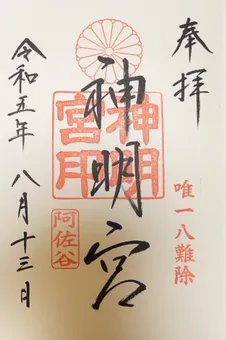 奉拝
唯一八難除
神明宮
神明宮
阿佐谷
令和五年 八月十三日